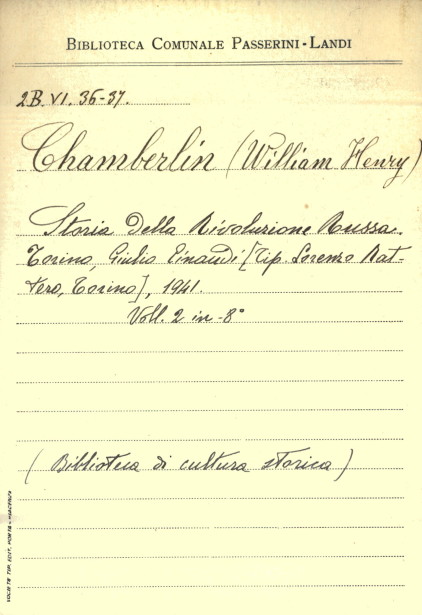 BIBLIOTECA COMUNALE PASSERINI-LANDI
2B. VI. 36-37.
Chamberlin (William Henry)
Storia della Rivoluzione Russa.
Torino, Giulio Einaudi [Tip. Lorenzo Rat-
tero, Torino], 1941.
Voll. 2 in-8°
(Biblioteca di cultura storica)